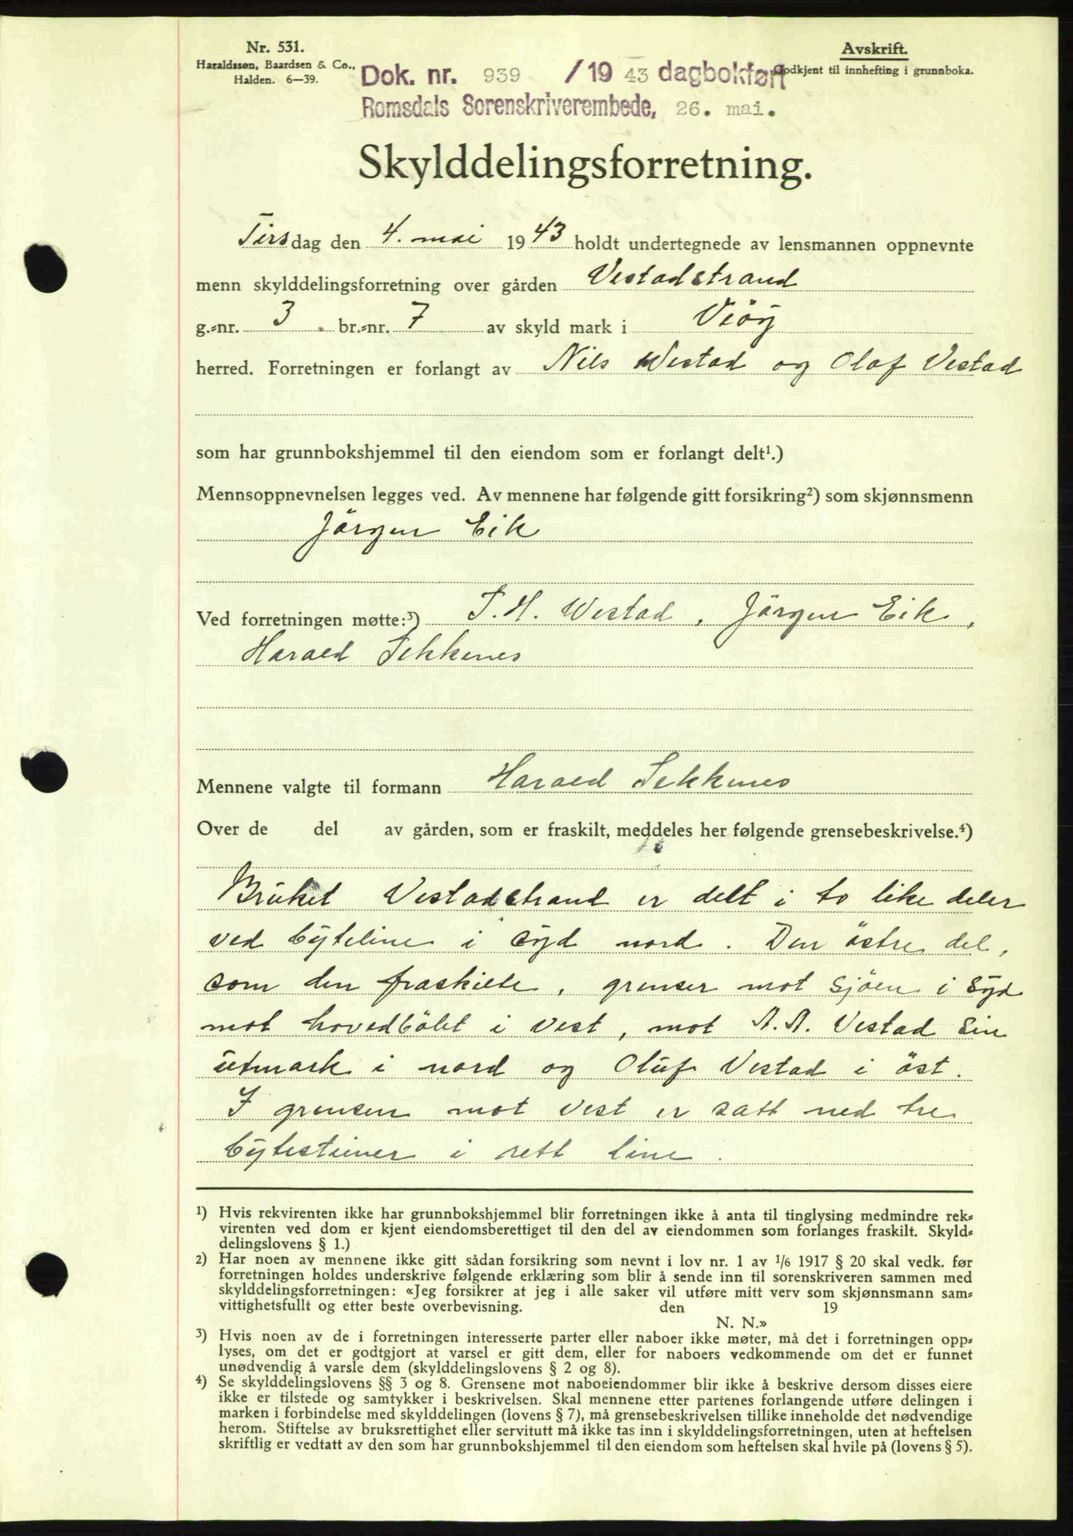 Nr. 531.
Haraldssøn, Baardsen & Co.,
Halden. 6—39.
Avskrift.
Godkjent til innhefting i grunnboka.
Dok. nr. 939 /19 43 dagbokført
Romsdals Sorenskriverembede, 26. mai.
Skylddelingsforretning.
Tirsdag den 4. mai 1943 holdt undertegnede av lensmannen oppnevnte
menn skylddelingsforretning over gården Vestadstrand
g.-nr. 3. br.-nr. 7 av skyld mark i Veöy
herred. Forretningen er forlangt av Nils Westad og Olaf Vestad
som har grunnbokshjemmel til den eiendom som er forlangt delt¹.)
Mennsoppnevnelsen legges ved. Av mennene har følgende gitt forsikring²) som skjønnsmenn
Jörgen Eik
Ved forretningen møtte:³) T. H. Westad, Jörgen Eik,
Harald Sekkenes
Mennene valgte til formann Harald Sekkenes
Over de del av gården, som er fraskilt, meddeles her følgende grensebeskrivelse.⁴)
Brüket Vestadstrand er delt i to like deler
ved byteline i syd nord. Den östre del,
som den fraskilte, grenser mot sjöen i syd
mot hovedbölet i vest, mot A. A. Vestad sin
ütmark i nord og Olüf Vestad i öst.
I grensen mot vest er satt ned tre
bytesteiner i rett line.
¹) Hvis rekvirenten ikke har grunnbokshjemmel blir forretningen ikke å anta til tinglysing medmindre rek-
virenten ved dom er kjent eiendomsberettiget til den del av eiendommen som forlanges fraskilt. Skyld-
delingslovens § 1.)
²) Har noen av mennene ikke gitt sådan forsikring som nevnt i lov nr. 1 av 1/6 1917 § 20 skal vedk. før
forretningen holdes underskrive følgende erklæring som blir å sende inn til sorenskriveren sammen med
skylddelingsforretningen: «Jeg forsikrer at jeg i alle saker vil utføre mitt verv som skjønnsmann sam-
vittighetsfullt og etter beste overbevisning. den 19
N. N.»
³) Hvis noen av de i forretningen interesserte parter eller naboer ikke møter, må det i forretningen opp-
lyses, om det er godtgjort at varsel er gitt dem, eller for naboers vedkommende om det er funnet
unødvendig å varsle dem (skylddelingslovens § 2 og 8).
⁴) Se skylddelingslovens §§ 3 og 8. Grensene mot naboeiendommer blir ikke å beskrive dersom disses eiere
ikke er tilstede og samtykker i beskrivelsen. Skal mennene etter partenes forlangende utføre delingen i
marken i forbindelse med skylddelingen (lovens § 7), må grensebeskrivelsen tillike inneholde det nødvendige
herom. Stiftelse av bruksrettighet eller servitutt må ikke tas inn i skylddelingsforretningen, uten at heftelsen
skriftlig er vedtatt av den som har grunnbokshjemmel til den eiendom som heftelsen skal hvile på (lovens § 5).